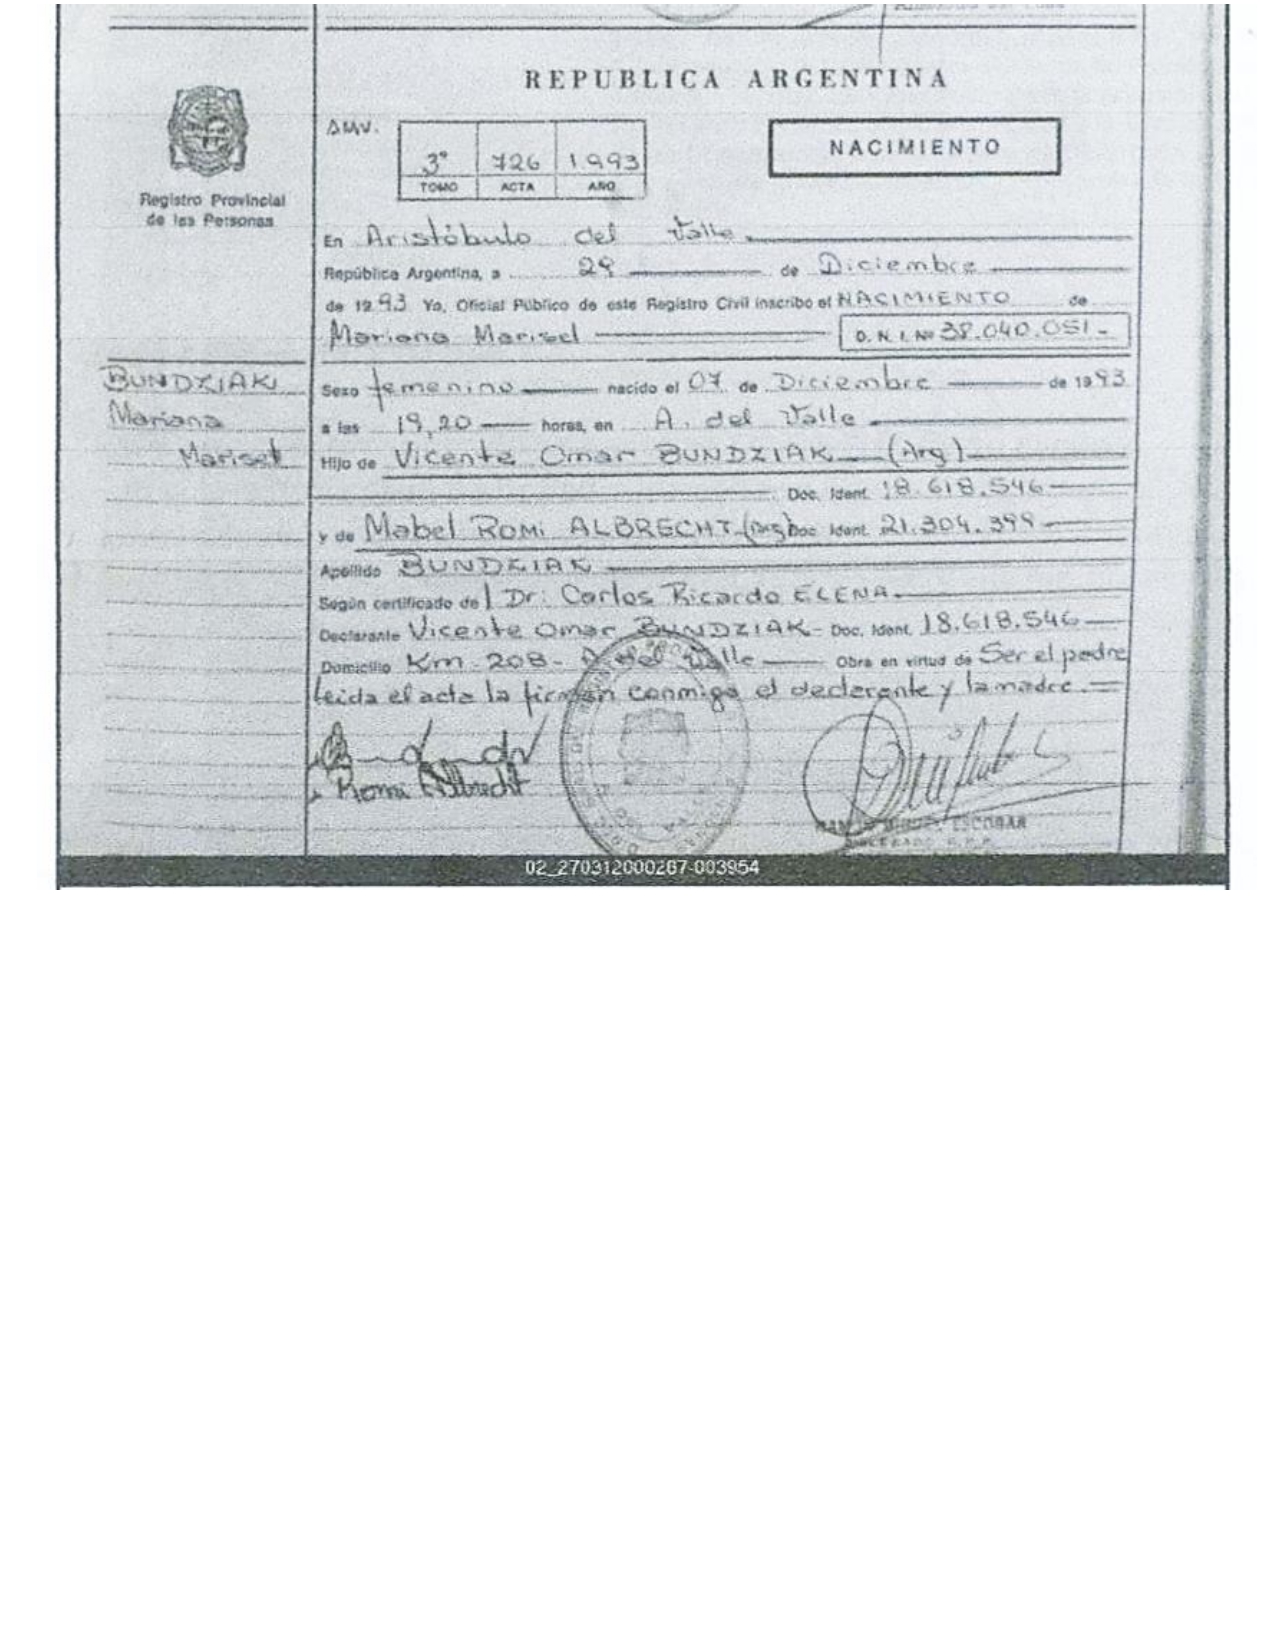 REPUBLICA ARGENTINA
AMV.
3° 726 1993
TOMO ACTA AÑO
NACIMIENTO
Registro Provincial
de las Personas
En Aristóbulo del Valle
República Argentina, a 29 de Diciembre
de 1993 Yo, Oficial Público de este Registro Civil inscribo el NACIMIENTO de
Mariana Marisel D. N. I. Nº 38.040.051.-
BUNDZIAK
Mariana
Marisel
Sexo femenino nacido el 07 de Diciembre de 1993
a las 19,20 horas, en A. del Valle
Hijo de Vicente Omar BUNDZIAK (Arg)
Doc. Ident. 18.618.546
y de Mabel Romi ALBRECHT (Arg) Doc. Ident. 21.304.399
Apellido BUNDZIAK
Según certificado del Dr: Carlos Ricardo ELENA.
Declarante Vicente Omar BUNDZIAK - Doc. Ident. 18.618.546
Domicilio Km - 208 - A. del Valle Obra en virtud de Ser el padre
leida el acta la firman conmigo el declarante y la madre. =
Romi Albrecht
MIGUEL ESCOBAR
02_270312000267-003954